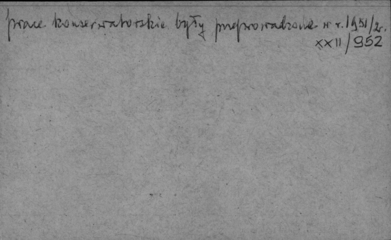 prace konserwatorskie były przeprowadzone w r. 1951/2r.
XXII/952